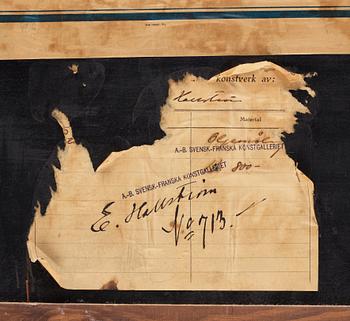 konstverk av:
Hallström
Material
Oljemål
A.-B. SVENSK-FRANSKA KONSTGALLERIET
800-
A.-B. SVENSK-FRANSKA KONSTGALLERIET
E. Hallström
No 713.-